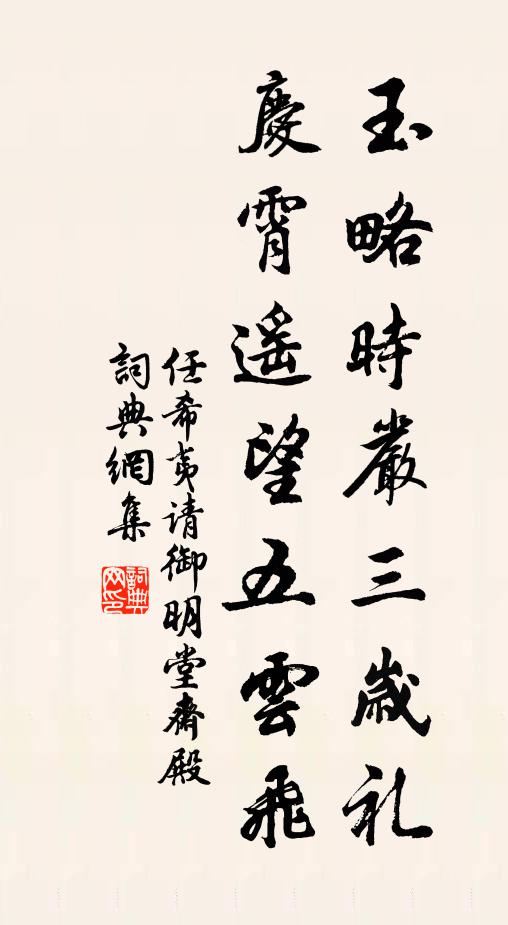 玉略時嚴三歲礼
慶霄遥望五雲飛
任希夷请御明堂齋殿
詞典網集
詞典
网印